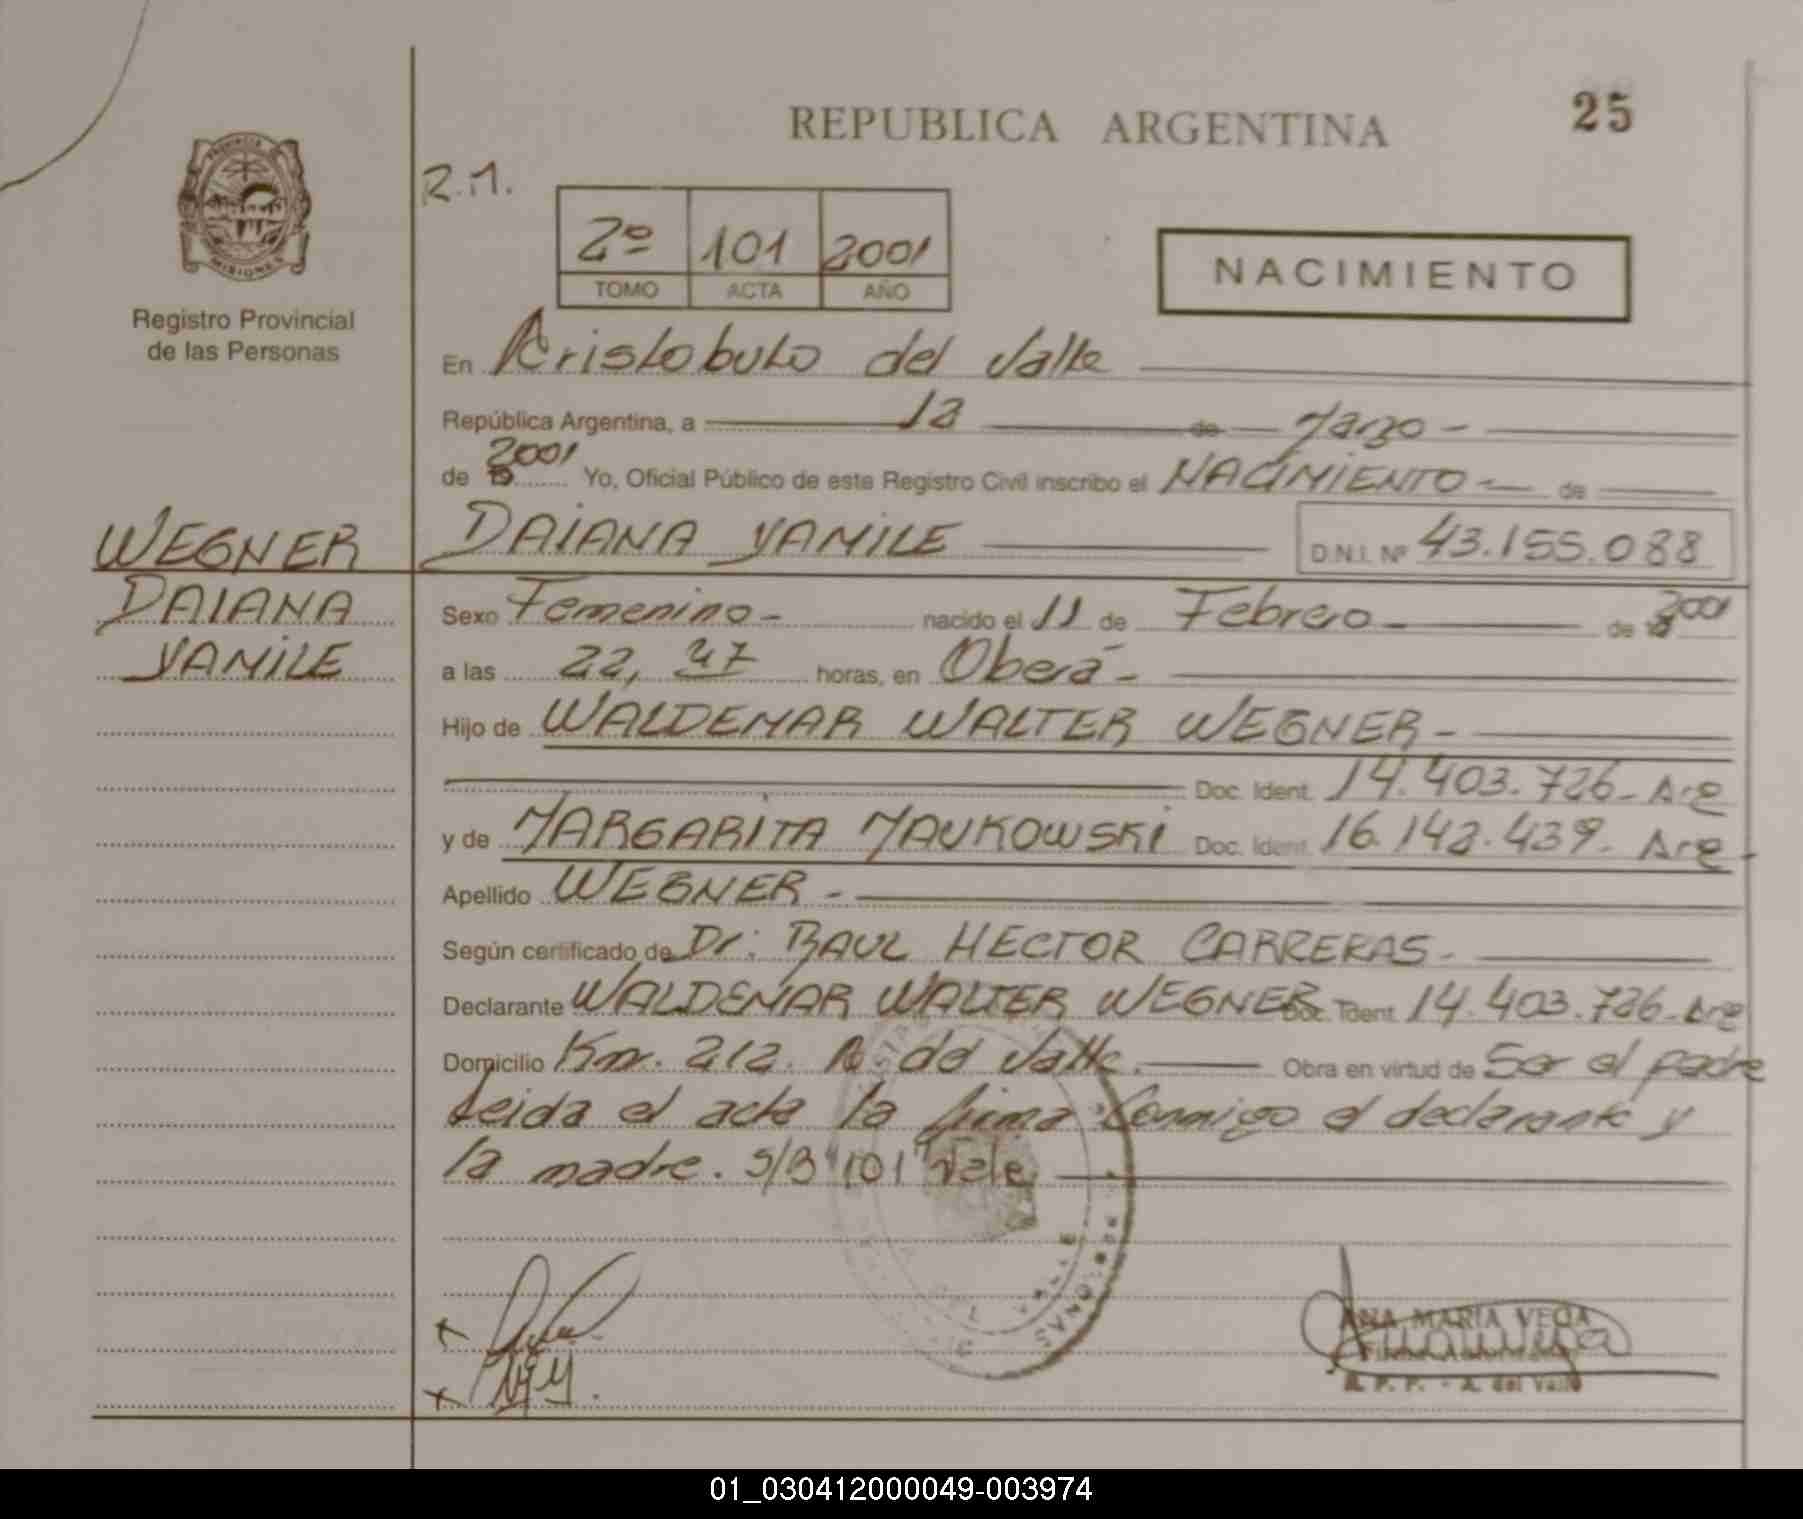 REPUBLICA ARGENTINA
25
PROVINCIA DE
MISIONES
Registro Provincial
de las Personas
R.M.
2º 101 2001
TOMO ACTA AÑO
NACIMIENTO
En Aristobulo del Valle
República Argentina, a 12 de Marzo -
de 2001 Yo, Oficial Público de este Registro Civil inscribo el NACIMIENTO - de
WEGNER DAIANA YAMILE D.N.I. Nº 43.155.088
DAIANA
YAMILE
Sexo Femenino - nacido el 11 de Febrero - de 2001
a las 22, 47 horas, en Oberá -
Hijo de WALDEMAR WALTER WEGNER -
Doc. Ident. 14.403.726 - Arg
y de MARGARITA MAUKOWSKI Doc. Ident. 16.142.439 - Arg -
Apellido WEGNER -
Según certificado de Dr: RAUL HECTOR CARRERAS -
Declarante WALDEMAR WALTER WEGNER Doc. Ident. 14.403.726 - Arg
Domicilio Km. 212. A. del Valle. Obra en virtud de Ser el padre
Leida el acta la firma Conmigo el declarante y
la madre. S/B "101" Vale
ANA MARIA VEGA
R. P. P. - A. del Valle
01_030412000049-003974